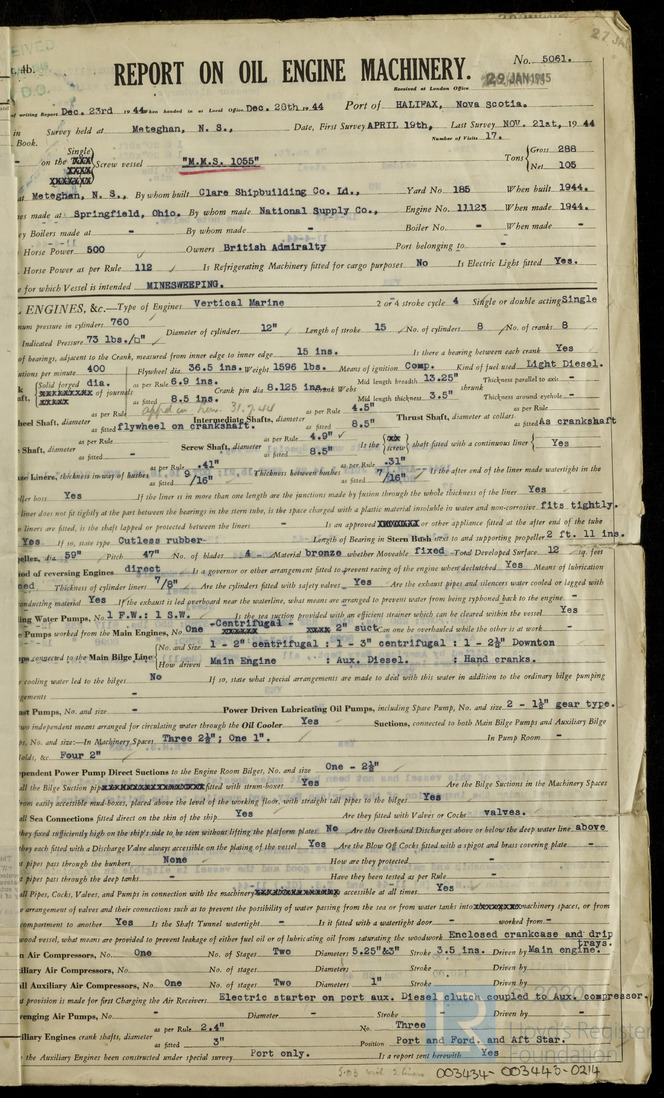 27 JAN
t. 4b.
REPORT ON OIL ENGINE MACHINERY.
No. 5061.
Received at London Office 29 JAN 1945
of writing Report Dec. 23rd 1944 When handed in at Local Office Dec. 28th 1944 Port of HALIFAX, Nova Scotia.
in Survey held at Meteghan, N. S., Date, First Survey APRIL 19th, Last Survey NOV. 21st, 1944
Book. Number of Visits 17.
on the Single Screw vessel "M.M.S. 1055" Tons Gross 288
Net 105
at Meteghan, N. S., By whom built Clare Shipbuilding Co. Ld., Yard No 185 When built 1944.
es made at Springfield, Ohio. By whom made National Supply Co., Engine No. 11123 When made 1944.
ey Boilers made at - By whom made - Boiler No. - When made -
Horse Power 500 Owners British Admiralty Port belonging to -
Horse Power as per Rule 112 Is Refrigerating Machinery fitted for cargo purposes No Is Electric Light fitted Yes.
e for which Vessel is intended MINESWEEPING.
ENGINES, &c.—Type of Engines Vertical Marine 2 or 4 stroke cycle 4 Single or double acting Single
mum pressure in cylinders 760 Diameter of cylinders 12" Length of stroke 15 No. of cylinders 8 No. of cranks 8
Indicated Pressure 73 lbs./□"
of bearings, adjacent to the Crank, measured from inner edge to inner edge 15 ins. Is there a bearing between each crank Yes
utions per minute 400 Flywheel dia. 36.5 ins. Weight 1596 lbs. Means of ignition Comp. Kind of fuel used Light Diesel.
Solid forged dia. of journals as per Rule 6.9 ins. Crank pin dia 8.125 ins. Crank Webs Mid length breadth 13.25" Thickness parallel to axis -
aft, as fitted 8.5 ins. Mid length thickness 3.5" shrunk Thickness around eyehole -
appd in here 31.7.44
heel Shaft, diameter as per Rule as fitted flywheel on crankshaft. Intermediate Shafts, diameter as per Rule 4.5" as fitted 8.5" Thrust Shaft, diameter at collars as per Rule as fitted As crankshaft
Shaft, diameter as per Rule - as fitted - Screw Shaft, diameter as per Rule 4.9" as fitted 8.5" Is the screw shaft fitted with a continuous liner Yes
nze Liners, thickness in way of bushes as per Rule .41" as fitted 9/16" Thickness between bushes as per Rule .31" as fitted 7/16" Is the after end of the liner made watertight in the
ller boss Yes If the liner is in more than one length are the junctions made by fusion through the whole thickness of the liner Yes
liner does not fit tightly at the part between the bearings in the stern tube, is the space charged with a plastic material insoluble in water and non-corrosive fits tightly.
liners are fitted, is the shaft lapped or protected between the liners - Is an approved or other appliance fitted at the after end of the tube
Yes If so, state type Cutless rubber Length of Bearing in Stern Bush next to and supporting propeller 2 ft. 11 ins.
eller, dia 59" Pitch 47" No. of blades 4 - Material bronze whether Moveable fixed Total Developed Surface 12 sq. feet
hod of reversing Engines direct Is a governor or other arrangement fitted to prevent racing of the engine when declutched Yes Means of lubrication
ced Thickness of cylinder liners 7/8" Are the cylinders fitted with safety valves Yes Are the exhaust pipes and silencers water cooled or lagged with
onducting material Yes If the exhaust is led overboard near the waterline, what means are arranged to prevent water from being syphoned back to the engine -
ling Water Pumps, No 1 F.W.: 1 S.W. Is the sea suction provided with an efficient strainer which can be cleared within the vessel Yes
e Pumps worked from the Main Engines, No One Centrifugal - 2" suct can one be overhauled while the other is at work -
ps connected to the Main Bilge Line No. and Size 1 - 2" centrifugal : 1 - 3" centrifugal : 1 - 2½" Downton
How driven Main Engine : Aux. Diesel. : Hand cranks.
cooling water led to the bilges No If so, state what special arrangements are made to deal with this water in addition to the ordinary bilge pumping
gements -
ast Pumps, No. and size - Power Driven Lubricating Oil Pumps, including Spare Pump, No. and size 2 - 1½" gear type.
wo independent means arranged for circulating water through the Oil Cooler Yes Suctions, connected to both Main Bilge Pumps and Auxiliary Bilge
ps, No. and size:—In Machinery Spaces Three 2½"; One 1". In Pump Room -
olds, &c. Four 2"
ependent Power Pump Direct Suctions to the Engine Room Bilges, No. and size One - 2½"
all the Bilge Suction pip fitted with strum-boxes Yes Are the Bilge Suctions in the Machinery Spaces
rom easily accessible mud-boxes, placed above the level of the working floor, with straight tail pipes to the bilges Yes
all Sea Connections fitted direct on the skin of the ship Yes Are they fitted with Valves or Cocks valves.
they fixed sufficiently high on the ship's side to be seen without lifting the platform plates No Are the Overboard Discharges above or below the deep water line above
they each fitted with a Discharge Valve always accessible on the plating of the vessel Yes Are the Blow Off Cocks fitted with a spigot and brass covering plate -
t pipes pass through the bunkers None How are they protected -
t pipes pass through the deep tanks - Have they been tested as per Rule -
all Pipes, Cocks, Valves, and Pumps in connection with the machinery accessible at all times Yes
e arrangement of valves and their connections such as to prevent the possibility of water passing from the sea or from water tanks into machinery spaces, or from
compartment to another Yes Is the Shaft Tunnel watertight - Is it fitted with a watertight door - worked from -
wood vessel, what means are provided to prevent leakage of either fuel oil or of lubricating oil from saturating the woodwork Enclosed crankcase and drip trays.
n Air Compressors, No. One No. of Stages Two Diameters 5.25"&3" Stroke 3.5 ins. Driven by Main engine.
iliary Air Compressors, No. No. of stages Diameters Stroke Driven by
all Auxiliary Air Compressors, No. One No. of Stages Two Diameters 1" Stroke Driven by
t provision is made for first Charging the Air Receivers Electric starter on port aux. Diesel clutch coupled to Aux. compressor.
enging Air Pumps, No. - Diameter - Stroke - Driven by -
iliary Engines crank shafts, diameter as per Rule 2.4" No. Three
as fitted 3" Position Port and Ford. and Aft Star.
the Auxiliary Engines been constructed under special survey Port only. Is a report sent herewith Yes
003434 - 003443-0214
2020
Lloyd's Register
Foundation